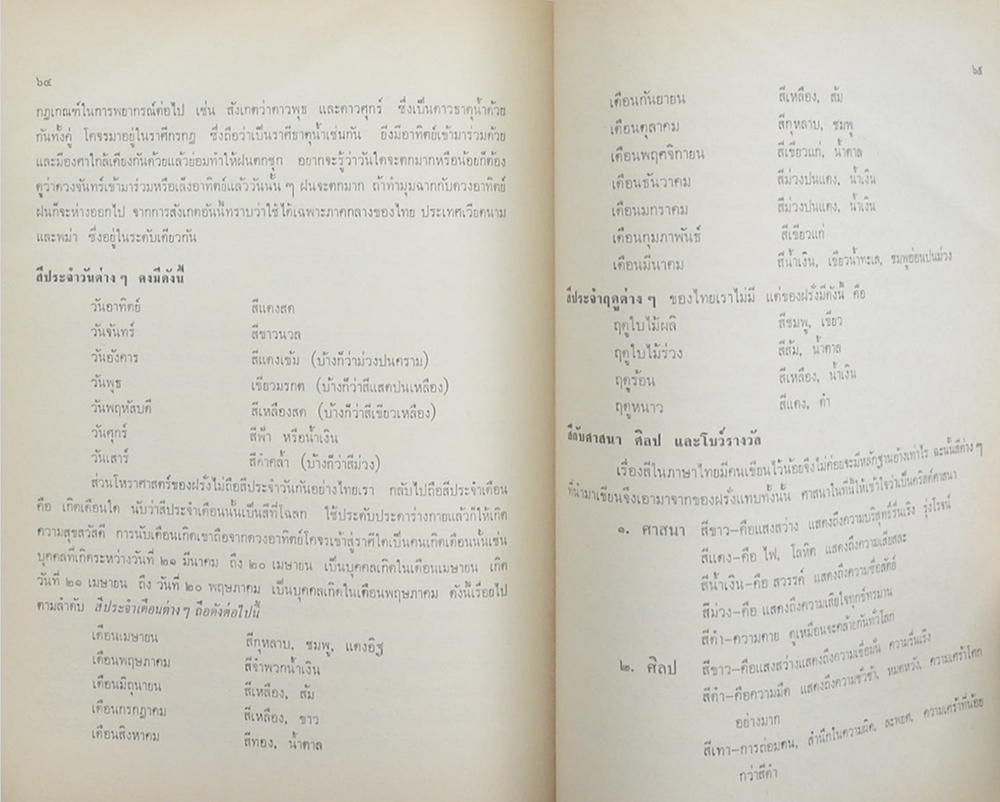 ๖๔
กฎเกณฑ์ในการพยากรณ์ต่อไป เช่น สังเกตว่าดาวพุธ และดาวศุกร์ ซึ่งเป็นดาวธาตุน้ำด้วย
กันทั้งคู่ โคจรมาอยู่ในราศีกรกฎ ซึ่งถือว่าเป็นราศีธาตุน้ำเช่นกัน ยิ่งมีอาทิตย์เข้ามาร่วมด้วย
และมีองศาใกล้เคียงกันด้วยแล้วย่อมทำให้ฝนตกชุก อยากจะรู้ว่าวันใดจะตกมากหรือน้อยก็ต้อง
ดูว่าดวงจันทร์เข้ามาร่วมหรือเล็งอาทิตย์แล้ววันนั้น ๆ ฝนจะตกมาก ถ้าทำมุมฉากกับดวงอาทิตย์
ฝนก็จะห่างออกไป จากการสังเกตอันนี้ทราบว่าใช้ได้เฉพาะภาคกลางของไทย ประเทศเวียดนาม
และพม่า ซึ่งอยู่ในระดับเดียวกัน
สีประจำวันต่าง ๆ คงมีดังนี้
วันอาทิตย์ สีแดงสด
วันจันทร์ สีขาวนวล
วันอังคาร สีแดงเข้ม (บ้างก็ว่าม่วงปนคราม)
วันพุธ เขียวมรกต (บ้างก็ว่าสีแสดปนเหลือง)
วันพฤหัสบดี สีเหลืองสด (บ้างก็ว่าสีเขียวเหลือง)
วันศุกร์ สีฟ้า หรือน้ำเงิน
วันเสาร์ สีดำคล้ำ (บ้างก็ว่าสีม่วง)
ส่วนโหราศาสตร์ของฝรั่งไม่ถือสีประจำวันกันอย่างไทยเรา กลับไปถือสีประจำเดือน
คือ เกิดเดือนใด นับว่าสีประจำเดือนนั้นเป็นสีที่โฉลก ใช้ประดับประดาร่างกายแล้วก็ให้เกิด
ความสุขสวัสดี การนับเดือนเกิดเขาถือจากดวงอาทิตย์โคจรเข้าสู่ราศีใดเป็นคนเกิดเดือนนั้นเช่น
บุคคลที่เกิดระหว่างวันที่ ๒๑ มีนาคม ถึง ๒๐ เมษายน เป็นบุคคลเกิดในเดือนเมษายน เกิด
วันที่ ๒๑ เมษายน ถึง วันที่ ๒๐ พฤษภาคม เป็นบุคคลเกิดในเดือนพฤษภาคม ดังนี้เรื่อยไป
ตามลำดับ สีประจำเดือนต่าง ๆ ถือดังต่อไปนี้
เดือนเมษายน สีกุหลาบ, ชมพู, แดงอิฐ
เดือนพฤษภาคม สีจำพวกน้ำเงิน
เดือนมิถุนายน สีเหลือง, ส้ม
เดือนกรกฎาคม สีเหลือง, ขาว
เดือนสิงหาคม สีทอง, น้ำตาล
๖๕
เดือนกันยายน สีเหลือง, ส้ม
เดือนตุลาคม สีกุหลาบ, ชมพู
เดือนพฤศจิกายน สีเขียวแก่, น้ำตาล
เดือนธันวาคม สีม่วงปนแดง, น้ำเงิน
เดือนมกราคม สีม่วงปนแดง, น้ำเงิน
เดือนกุมภาพันธ์ สีเขียวแก่
เดือนมีนาคม สีน้ำเงิน, เขียวน้ำทะเล, ชมพูอ่อนปนม่วง
สีประจำฤดูต่าง ๆ ของไทยเราไม่มี แต่ของฝรั่งมีดังนี้ คือ
ฤดูใบไม้ผลิ สีชมพู, เขียว
ฤดูใบไม้ร่วง สีส้ม, น้ำตาล
ฤดูร้อน สีเหลือง, น้ำเงิน
ฤดูหนาว สีแดง, ดำ
สีกับศาสนา ศิลป และโบว์รางวัล
เรื่องสีในภาษาไทยมีคนเขียนไว้น้อยจึงไม่ค่อยจะมีหลักฐานอ้างเท่าไร ฉะนั้นสีต่าง ๆ
ที่นำมาเขียนจึงเอามาจากของฝรั่งแทบทั้งนั้น ศาสนาในที่นี้ให้เข้าใจว่าเป็นคริสต์ศาสนา
๑. ศาสนา สีขาว–คือแสงสว่าง แสดงถึงความบริสุทธิ์รื่นเริง รุ่งโรจน์
สีแดง–คือ ไฟ, โลหิต แสดงถึงความเสียสละ
สีน้ำเงิน–คือ สวรรค์ แสดงถึงความซื่อสัตย์
สีม่วง–คือ แสดงถึงความเสียใจทุกข์ทรมาน
สีดำ–ความตาย ดูเหมือนจะคล้ายกันทั่วโลก
๒. ศิลป สีขาว–คือแสงสว่างแสดงถึงความเชื่อมั่น ความรื่นเริง
สีดำ–คือความมืด แสดงถึงความชั่วช้า, หมดหวัง, ความเศร้าโศก
อย่างมาก
สีเทา–การถ่อมตน, สำนึกในความผิด, ละพยศ, ความเศร้าที่น้อย
กว่าสีดำ